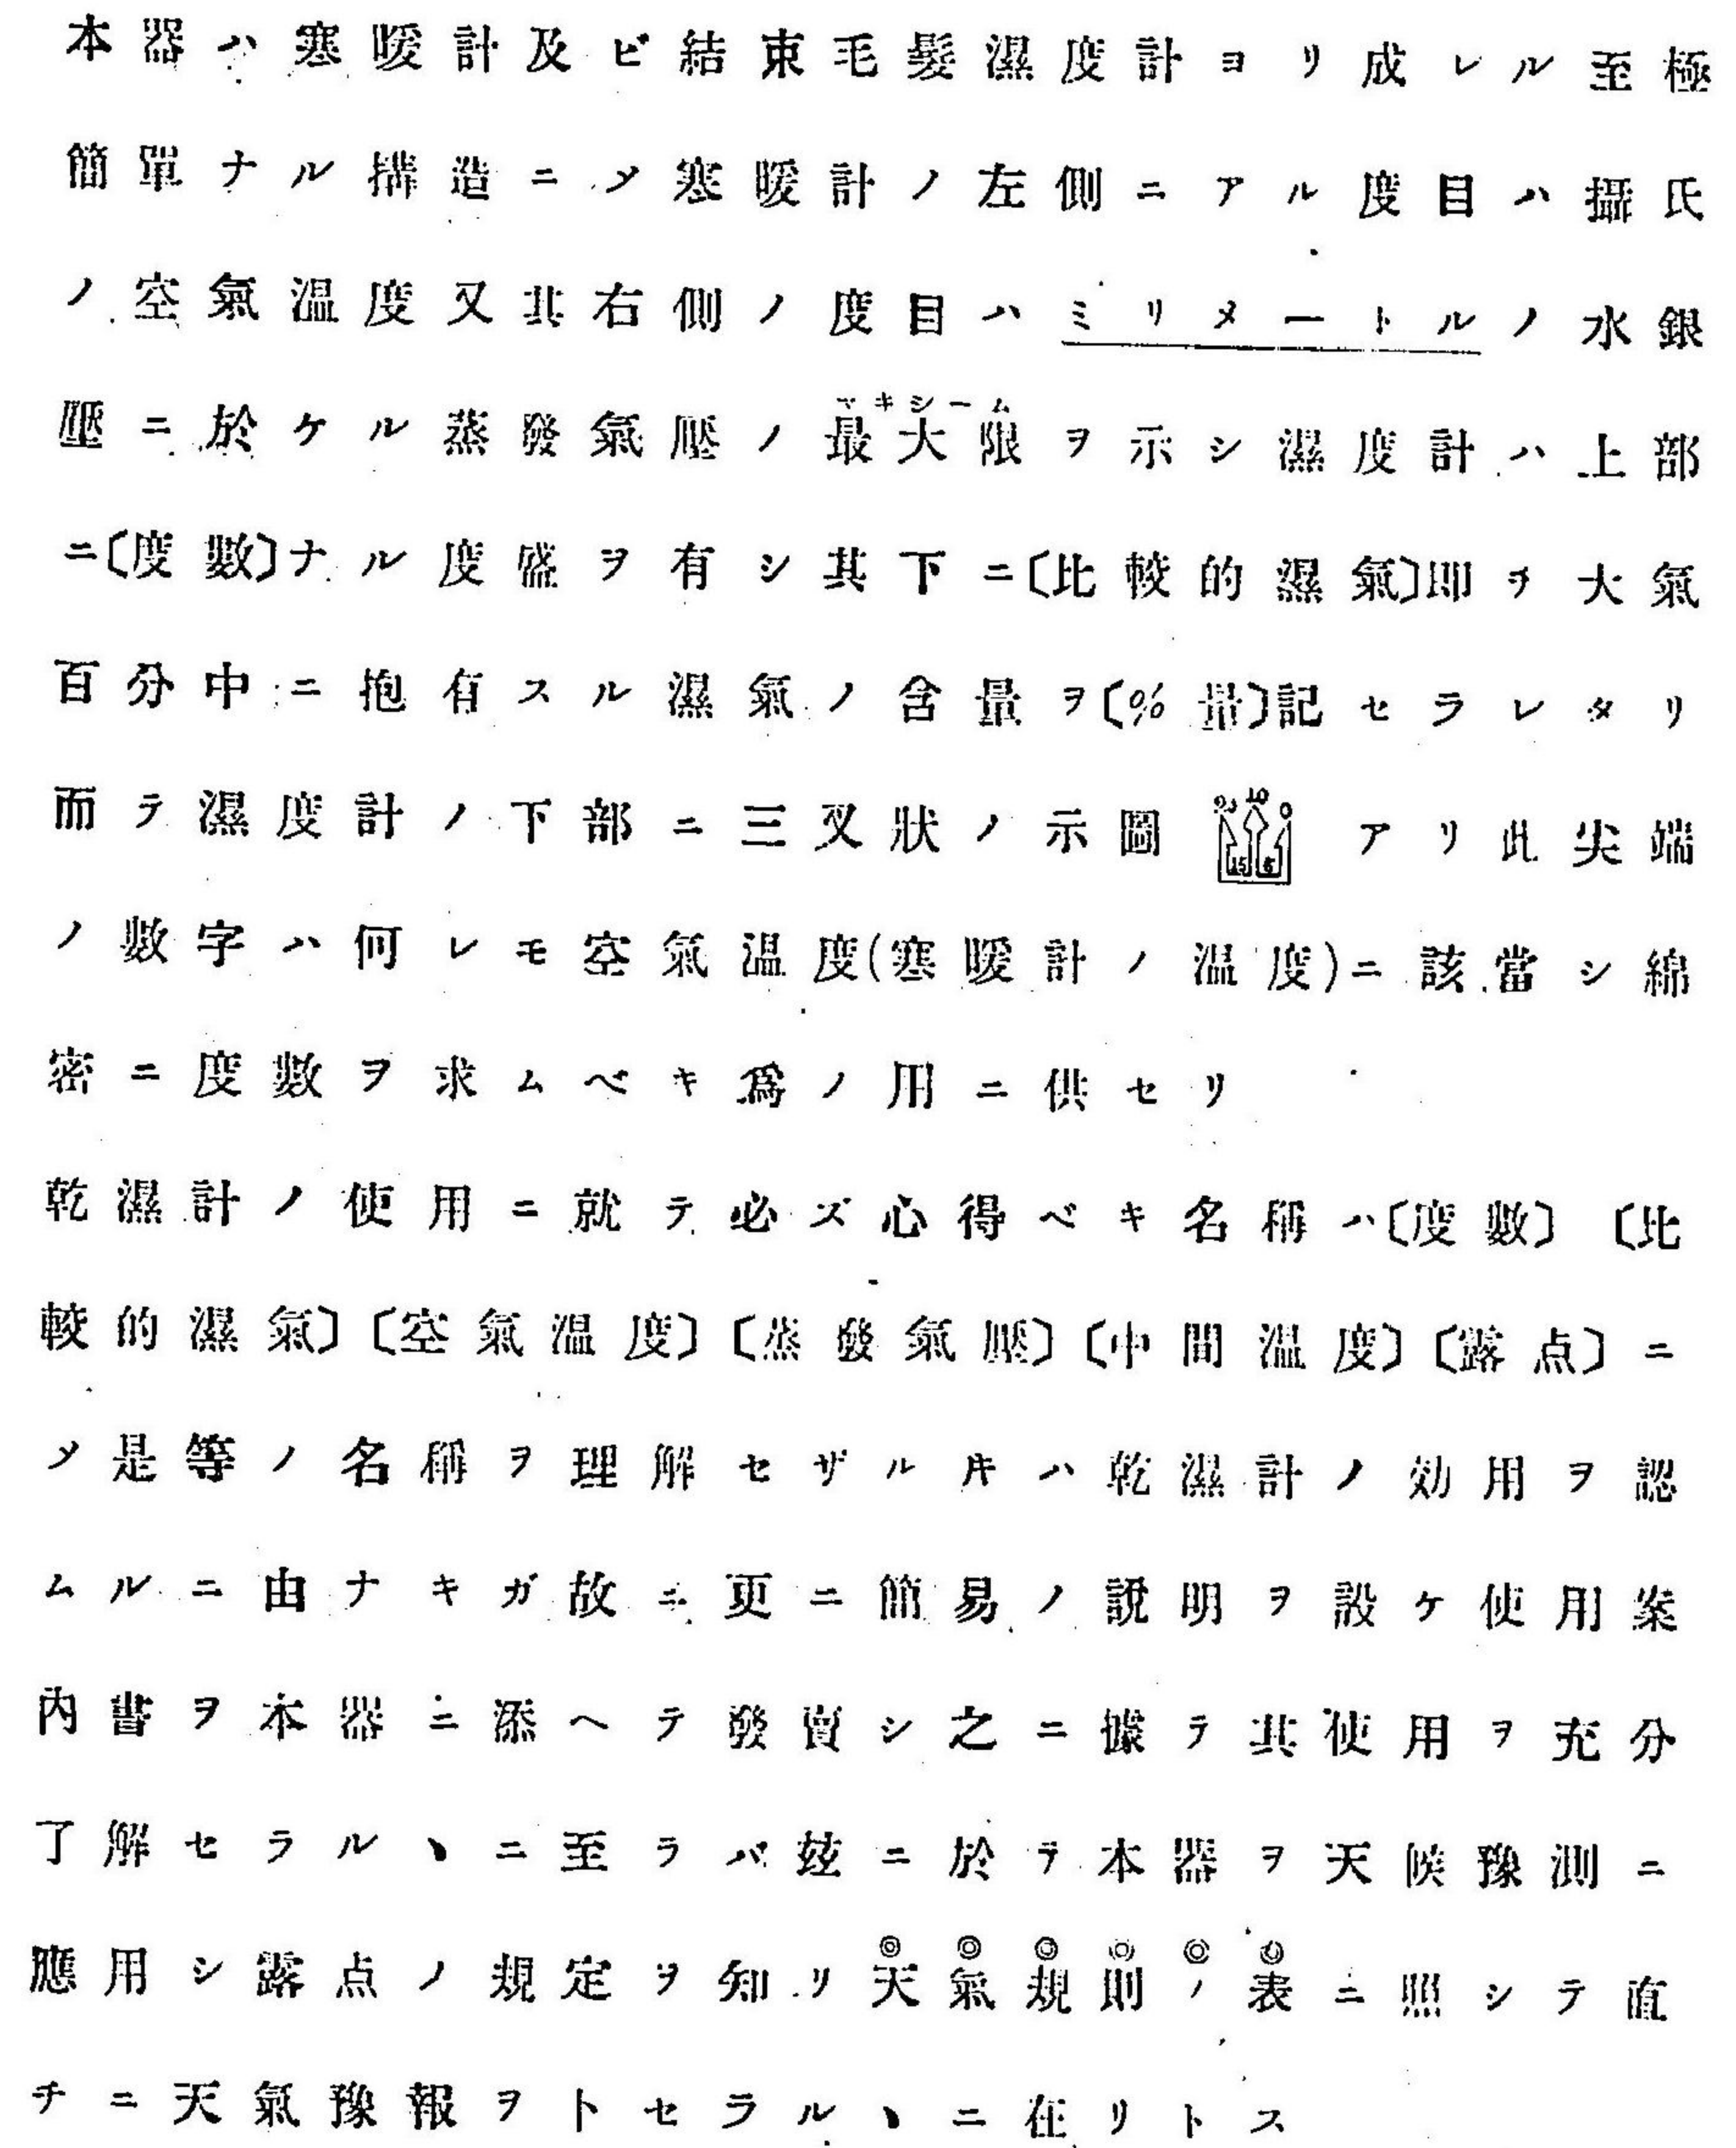 本器ハ寒暖計及ビ結束毛髮濕度計ヨリ成レル至極
簡單ナル構造ニ〆寒暖計ノ左側ニアル度目ハ攝氏
ノ空氣溫度又其右側ノ度目ハミリメートルノ水銀
壓ニ於ケル蒸發氣壓ノ最大限ヲ示シ濕度計ハ上部
マキシーム
ニ〔度數〕ナル度盛ヲ有シ其下ニ〔比較的濕氣〕卽チ大氣
百分中ニ抱有スル濕氣ノ含量ヲ〔%量〕記セラレタリ
而テ濕度計ノ下部ニ三叉狀ノ示圖 アリ此尖端
ノ數字ハ何レモ空氣溫度(寒暖計ノ溫度)ニ該當シ綿
密ニ度數ヲ求ムベキ爲ノ用ニ供セリ
乾濕計ノ使用ニ就テ必ズ心得ベキ名稱ハ〔度數〕〔比
較的濕氣〕〔空氣溫度〕〔蒸發氣壓〕〔中間溫度〕〔露点〕ニ
〆是等ノ名稱ヲ理解セザル片ハ乾濕計ノ効用ヲ認
ムルニ由ナキガ故ニ更ニ簡易ノ說明ヲ設ケ使用案
內書ヲ本器ニ添ヘテ發賣シ之ニ據テ其使用ヲ充分
了解セラルヽニ至ラバ玆ニ於テ本器ヲ天候豫測ニ
應用シ露点ノ規定ヲ知リ天氣規則ノ表ニ照シテ直
チニ天氣豫報ヲトセラルヽニ在リトス